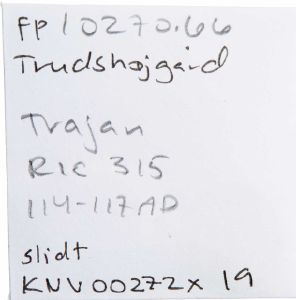 FP 10270.66
Trudshøjgård
Trajan
RIC 315
114-117 AD
slidt
KNV00272x 19